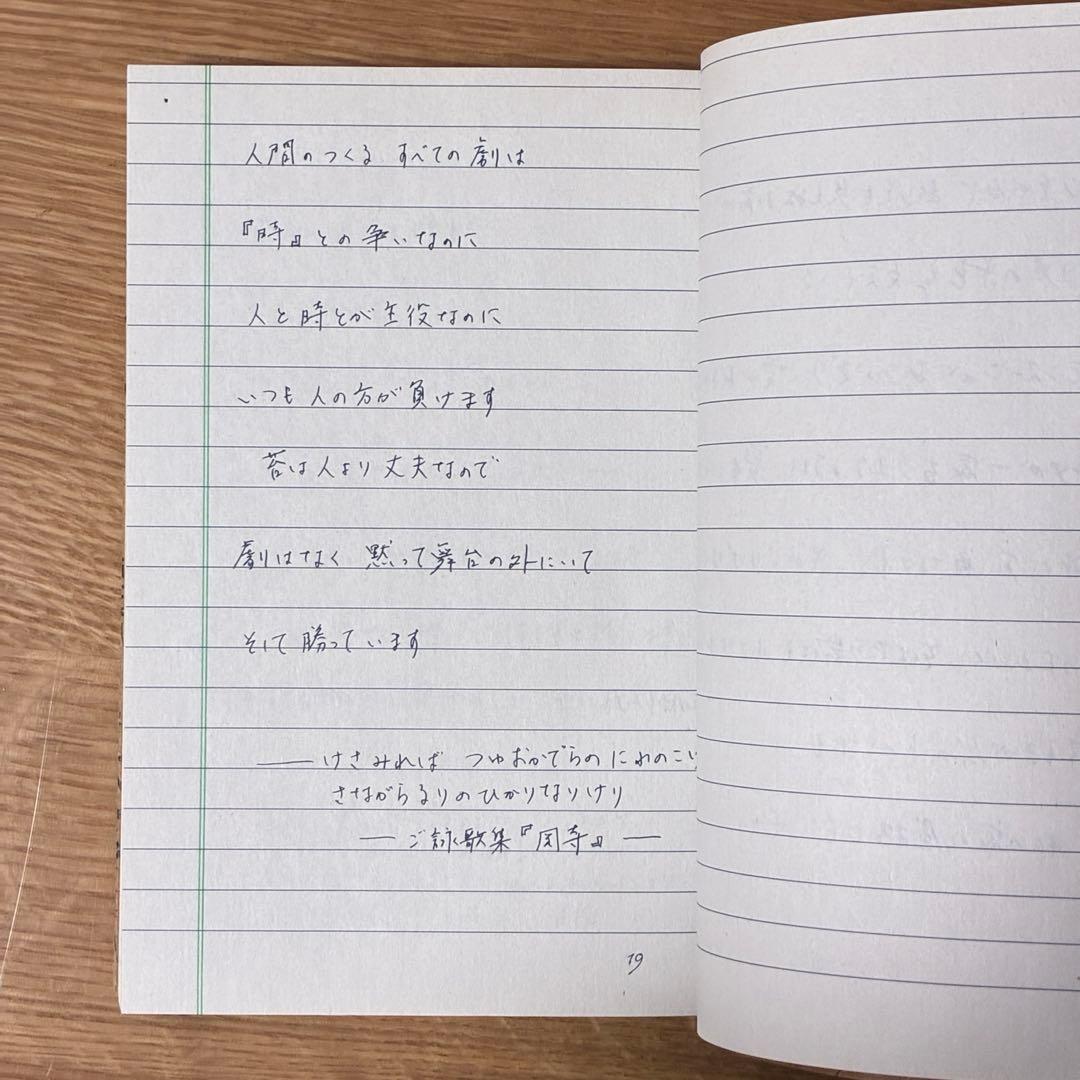 人間のつくる すべての劇は
『時』との争いなのに
人と時とが主役なのに
いつも人の方が負けます
苔は人より丈夫なので
劇はなく 黙って舞台の外にいて
そして勝っています
―― けさみれば つゆおかでらの にわのこ
さながらるりのひかりなりけり
― ご詠歌集『岡寺』 ―
19